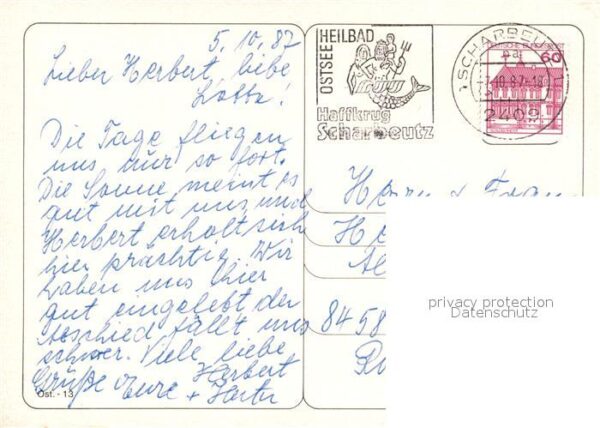 5.10.87
Lieber Herbert, liebe
Lotte!
Die Tage fliegen
uns nur so fort.
Die Sonne meint es
gut mit uns und
Herbert erholt sich
hier prächtig. Wir
haben uns hier
gut eingelebt der
Abschied fällt uns
schwer. Viele liebe
Grüße Eure Herbert
+
Ost. - 13
OSTSEE HEILBAD
Haffkrug
Scharbeutz
SCHARBEUTZ
2409
60
Herrn u. Frau
He
Al
8458
privacy protection
Datenschutz